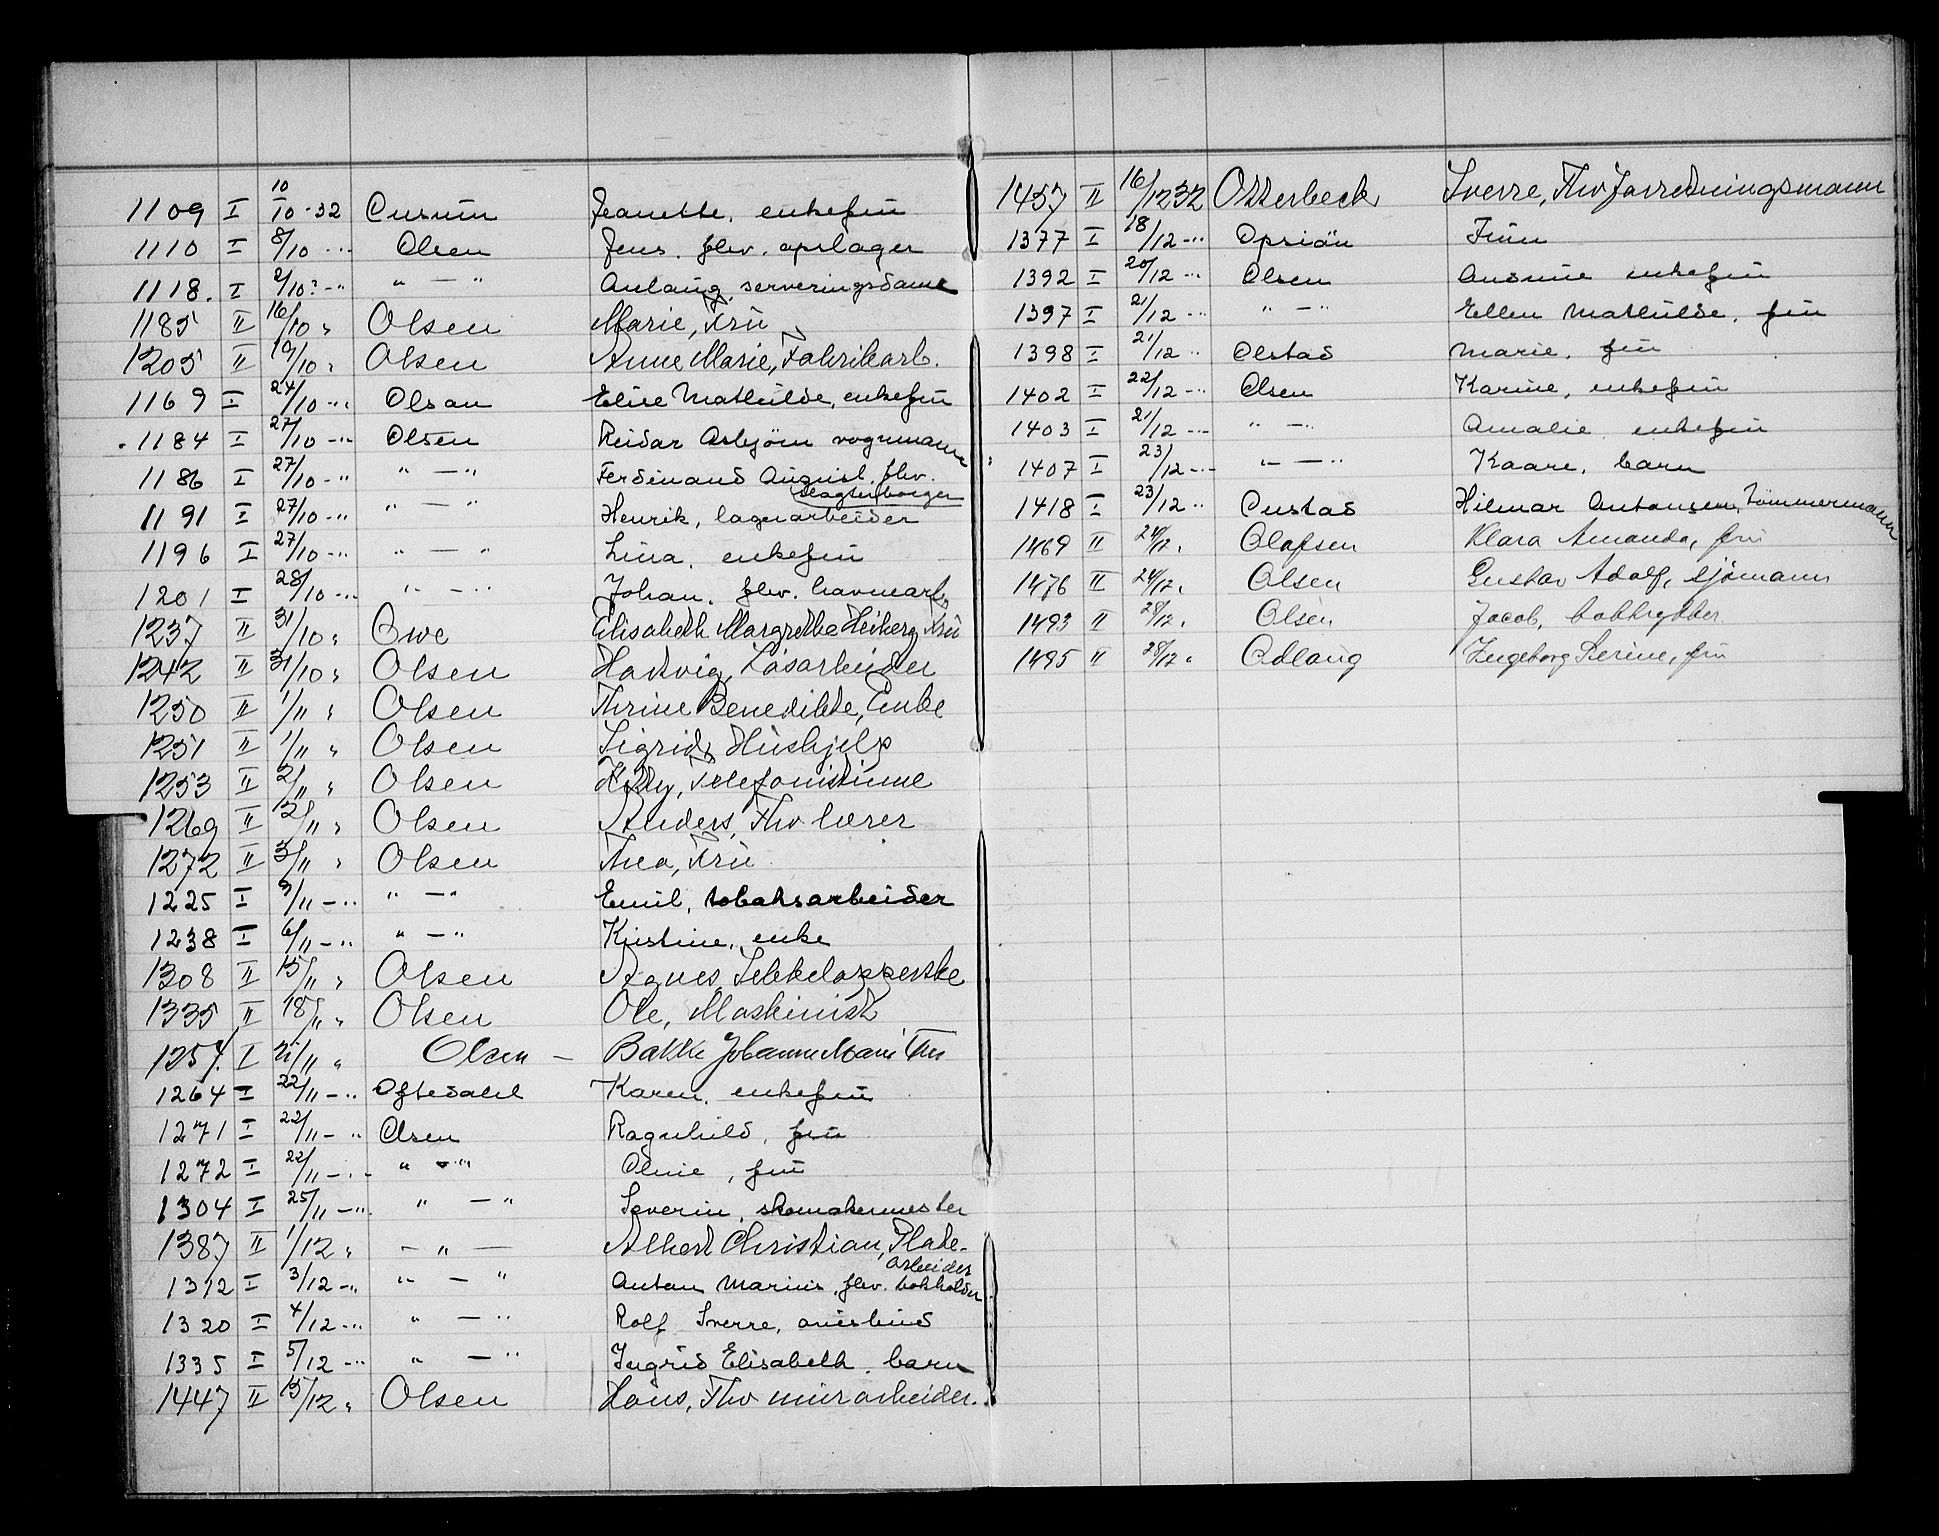 1109 I 10/10-32 Jeanette, enkefru
1110 I 8/10 -"- Olsen Jens, fhv. opslager
1118. I 2/10? -"- " — " Anlaug, serveringsdame
1185 II 16/10 " Olsen Marie, Fru
1205 II 19/10 " Olsen Anne Marie, Fabrikarb.
1169 I 24/10 -"- Olsan Elise Mathilde, enkefru
1184 I 27/10 -"- Olsen Reidar Asbjørn vognmann
1186 I 27/10 -"- " — " Ferdinand August, fhv.
slagterborger
1191 I 27/10 -"- " — " Henrik, lagerarbeider
1196 I 27/10 -"- " — " Lina, enkefru
1201 I 28/10 -"- " — " Johan, fhv. havnearb.
1237 II 31/10 " Owe Elisabeth Margrethe Heiberg Fru
1242 II 31/10 " Olsen Hartvig, Løsarbeider
1250 II 1/11 " Olsen Thrine Benedikte, Enke
1251 II 1/11 " Olsen Sigrid, Hushjelp
1253 II 2/11 " Olsen Kitty, Telefonistinne
1269 II 12/11 " Olsen Anders, Fhv lærer
1272 II 3/11 " Olsen Thea, Fru
1225 I 9/11 -"- " — " Emil, tobaksarbeider
1238 I 6/11 -"- " — " Kristine, enke
1308 II 15/11 " Olsen Agnes, Sekkelapperske
1335 II 18/11 " Olsen Ole, Maskinist
1257. I 21/11 " Olsen — Bakke Johanne Marie Fru
1264 I 22/11 -"- Oftedahl Karen, enkefru
1271 I 22/11 -"- Olsen Ragnhild, fru
1272 I 22/11 -"- " — " Oline, fru
1304 I 25/11 -"- " — " Severin, skomakermester
1387 II 1/12 " — " — Albert Christian, Plate-
arbeider
1312 I 3/12 -"- " — " Anton Marius, fhv. bokholder
1320 I 4/12 -"- " — " Rolf Sverre, avisbud
1335 I 5/12 -"- " — " Ingrid Elisabeth, barn
1447 II 15/12 " Olsen Hans, Fhv murarbeider.
1457 II 16/12 32 Otterbeck Sverre, Fhv forretningsmann
1377 I 18/12 -"- Opsiøn Finn
1392 I 20/12 -"- Olsen enkefru
1397 I 21/12 -"- " — " Ellen Mathilde, fru
1398 I 21/12 -"- Olstad Marie, fru
1402 I 22/12 -"- Olsen Karine, enkefru
1403 I 21/12 -"- " — " Amalie, enkefru
1407 I 23/12 -"- " — " Kaare, barn
1418 I 23/12 -"- Onstad Hilmar Antonsen, tømmermann
1469 II 24/12 " Olafsen Klara Amanda, fru
1476 II 24/12 " Olsen Gustav Adolf, sjømann
1493 II 28/12 " Olsen Jacob,
1495 II 28/12 " Odlaug Ingeborg Serine, fru